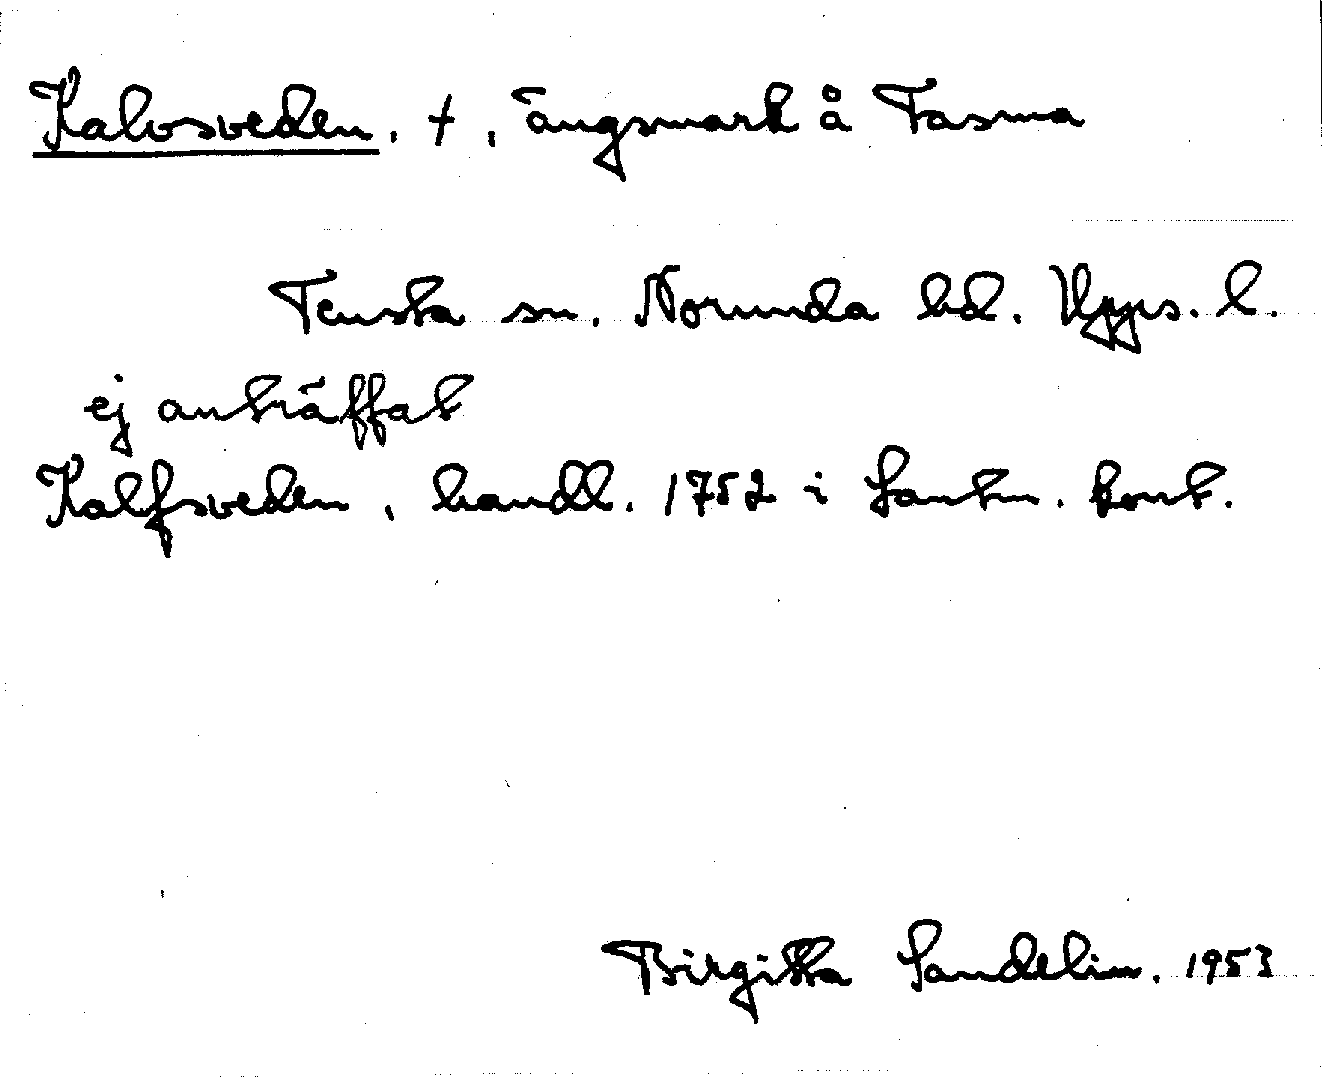 Kalvsveden. +, ängsmark å Tasma
Tensta sn. Norunda hd. Upps. l.
ej anträffat
Kalfsveden, handl. 1752 i Lantm. kont.
Birgitta Sandelin. 1953